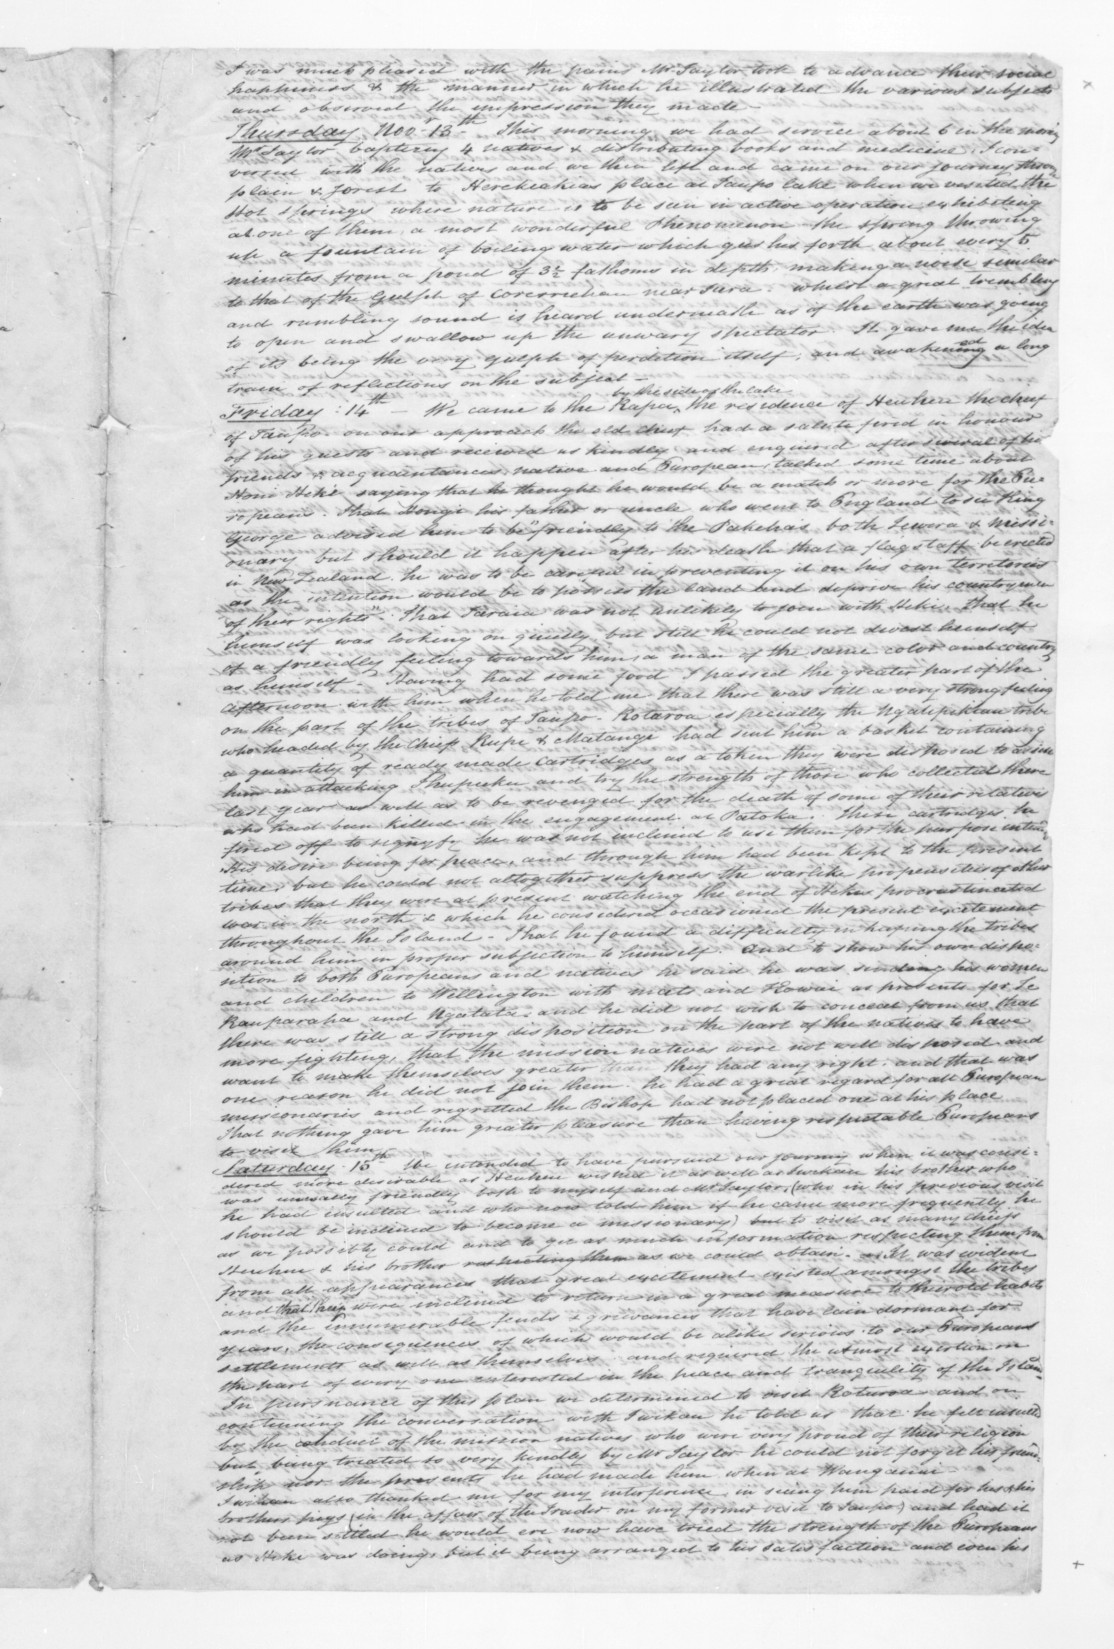 I was much pleased with the pains Mr Taylor took to advance their social
happiness & the manner in which he illustrated the various subjects
and observed the impression they made -
Thursday Nov 13th This morning we had service about 6 in the morning
Mr Taylor baptizing 4 natives & distributing books and medicine I con-
versed with the natives and we then left and came on our journey thro
plain & forest to Herekiekies place at Taupo lake when we visited the
Hot Springs where nature is to be seen in active operation exhibiting
at one of them a most wonderful Phenomenon the spring throwing
up a fountain of boiling water which gushes forth about every 5
minutes from a pond of 3½ fathoms in depth, making a noise similar
to that of the Gulph of near Jura: whilst a great trembling
and rumbling sound is heard underneath as if the earth was going
to open and swallow up the unwary spectator It gave me the idea
of its being the very gulph of perdition itself, and awakened a long
train of reflections on the subject -
Friday 14th - We came to the Rapa, by the side of the lake the residence of Heuheu the chief
of Taupo on our approach the old chief had a salute fired in honour
of his guests and received us kindly and enquired after several of his
friends & acquaintances native and European, talked some time about
Honi Heke saying that he thought he would be a match or more for the Eu-
ropeans. That Hongi his father or uncle who went to England to see King
George advised him to be "friendly to the Pakehas both Tewera & missi-
onary but should it happen after his death that a flagstaff be erected
in New Zealand he was to be careful in preventing it on his own territories
as the intention would be to possess the land and deprive his countrymen
of their rights". That Taraia was not unlikely to join with Heke, that he
himself was looking on quietly but still he could not divest himself
of a friendly feeling towards him, a man of the same color and country
as himself. Having had some food I passed the greater part of the
afternoon with him when he told me that there was still a very strong feeling
on the part of the tribes of Taupo - Rotaroa especially the Ngatipikiau tribe
who headed by the Chiefs Rupe & Matangi had sent him a basket containing
a quantity of ready made Cartridges as a token they were disposed to assist
him in attacking and try the strength of those who collected there
last year as well as to be revenged for the death of some of their relatives
who had been killed in the engagement at Patoka. These cartridges he
fired off to signify he was not inclined to use them for the purpose inten
his desire being for peace, and through him had been kept to the present
time, but he could not altogether suppress the warlike propensities of other
tribes that they were at present watching the end of Hekes procrastinated
war in the north & which he considered occasioned the present excitement
throughout the Island - That he found a difficulty in keeping the tribes
around him in proper subjection to himself. And to show his own dispo-
sition to both Europeans and natives he said he was sending his women
and children to Wellington with mats and as presents for Te
Rauparaha and Ngatata, and he did not wish to conceal from us that
there was still a strong disposition on the part of the natives to have
more fighting, that the mission natives were not well disposed and
want to make themselves greater than they had any right: and that was
one reason he did not join them. he had a great regard for all European
missionaries and regretted the Bishop had not placed one at his place
That nothing gave him greater pleasure than having respectable Europeans
to visit him.
Satterday 15th We intended to have pursued our journey when it was consi-
dered more desirable as Heuheu wished it as well as Iwikau his brother who
was unusually friendly both to myself and Mr Taylor, (who in his previous visit
he had insulted and who now told him if he came more frequently he
should be inclined to become a missionary) but to visit as many chiefs
as we possibly could and to get as much information respecting them from
Heuheu & his brother respecting them as we could obtain. - It was evident
from all appearances that great excitement existed amongst the tribes
and that they were inclined to return in a great measure to their old habits
and the innumerable feuds & grievances that have lain dormant for
years, the consequences of which would be alike serious to our Europeans
settlements as well as themselves and required the utmost exertion on
the part of every one interested in the peace and tranquility of the Island
In pursuance of this plan we determined to visit Roturoa and on
continuing the conversation with Iwikau he told us that he felt insulted
by the conduct of the mission natives who were very proud of their religion
but being treated so very kindly by Mr Taylor he could not forget his friend-
ship nor the presents he had made him when at Wanganui
Iwikau also thanked me for my interference in seeing him paid for his & his
brothers pigs (in the affair of the Trader on my former visit to Taupo) and had it
not been settled he would ere now have tried the strength of the Europeans
as Heke was doing, but it being arranged to his satisfaction and even his